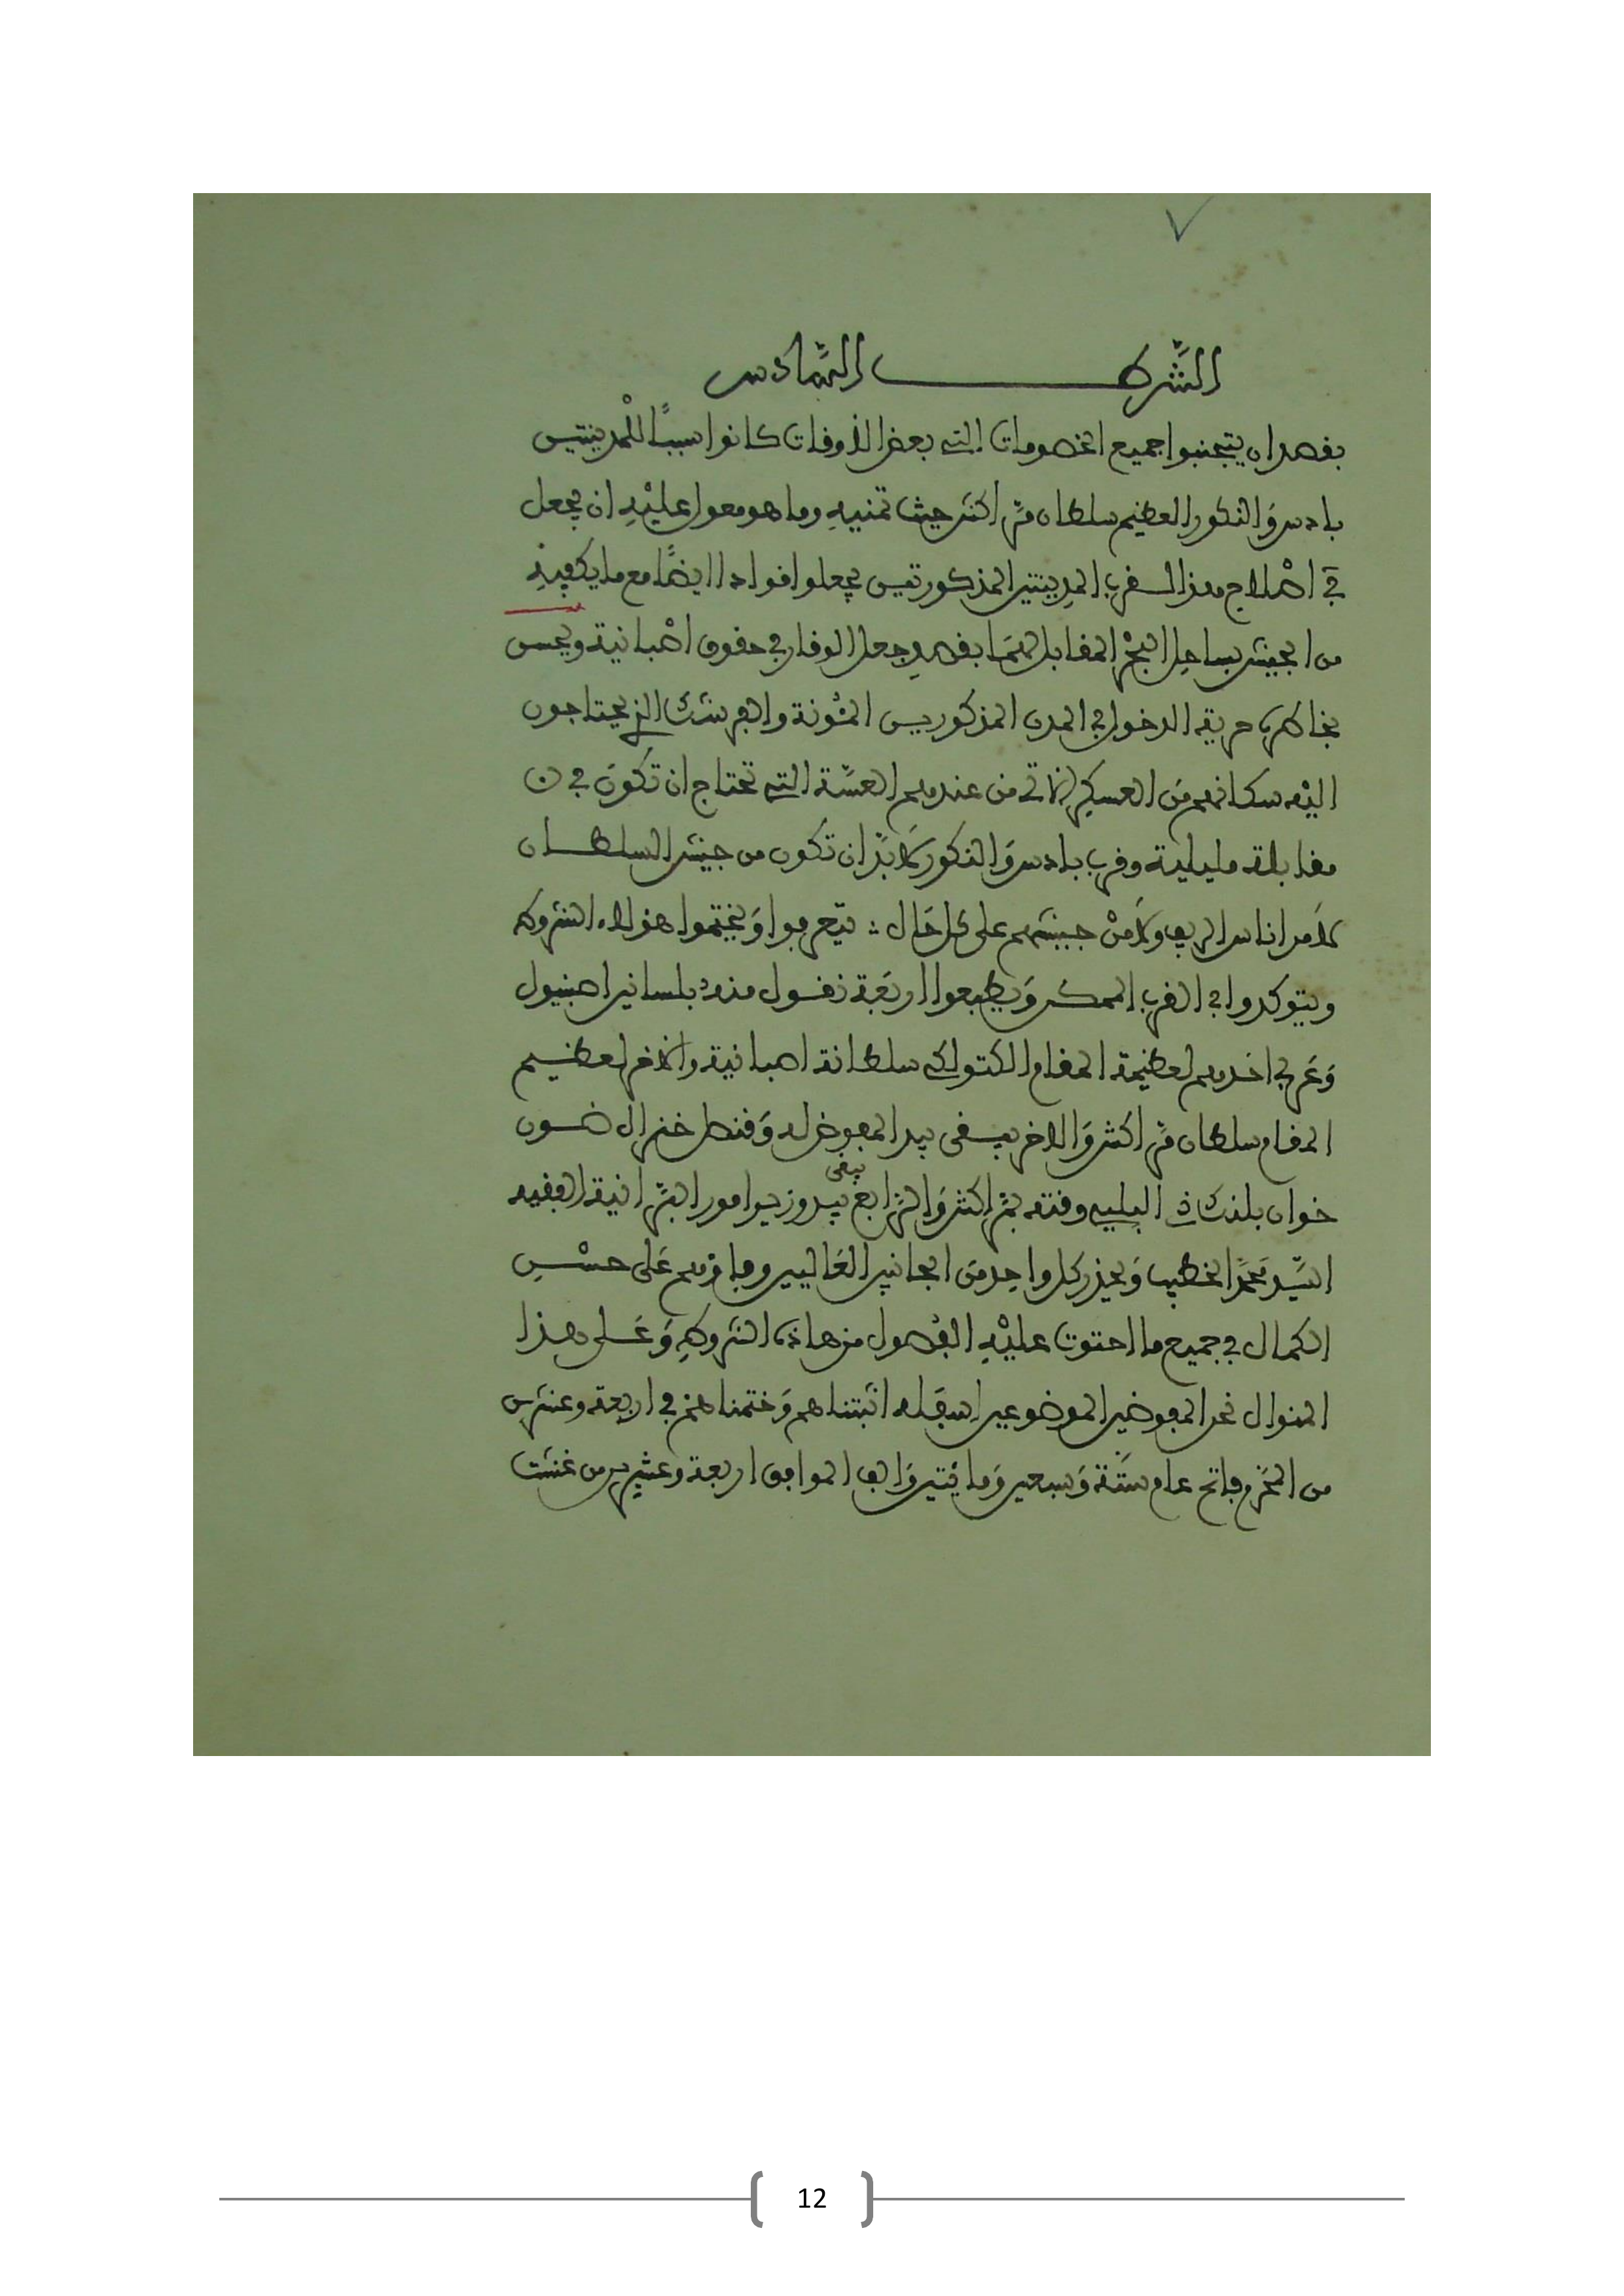 الشرط السَّادس
بقصد ان يتجنبوا جميع الخصومات التي بعض الاوقات كانوا سببًا للْمدينتين
بادس وَالنكور العظيم سلطان مرّاكش حيث تمنيهِ وما هو معول عليْهِ ان يجعل
في اصْلاح هذا السفر المدينتين المذكورتين يجعلوا قوادا ايضًا مع ما يكفِيهِ
من الجيش بساحِل البحْر المقابل لهمَا بقصدِ جعل الوقار في حقوق اصْبانية ويحسن
بخاطر حرية الدخول في المدن المذكورين المُونة والفرشك الذي يحتاجون
اليْه سكانهم منَ العسكر من عندهم العسَّة التي تحتاج ان تكونَ في
مقابلة مليلية وقرب بادس وَالنكور لَابدَّ ان تكون من جيش السلطان
لَا من اناس الريف ولَا منْ جيشهم على كل حَال : يتعرفوا وَيختموا هولاء الشروط
ويتوكدوا في القرب الممكن وَيطبعوا اربَعة نقول منه بلسانين اصبنيول
وَعربي احَدهم لعظيمة المقام الكتولكي سلطانة اصبانية والاخر لعظيم
المقام سلطان مرّاكش وَالاخر يبقى بيد المفوض له وَقنصل خنرال ضون
خوان بلنك ذ البليي وقته بمرّاكش وَالرَّابع يبقى بيد وزير امور البرَّانية الفقيه
السّيد محَمَّد الخطيب وَيحذر كل واحِد منَ الجانبين العَاليين وفاؤهم عَلى حسْن
الكمال في جميع ما احتوت عليْهِ الفُصول من هاذه الشروطِ وَعَلى هذا
المنوال نحن المفوضين الموضوعين اسفَله اثبتناهم وَختمناهم في اربعة وعشرين
من المحَرم فاتح عام ستَّة وَسبعين وَمايَتين وَالف الموافق اربعة وعشرين من غشت
12